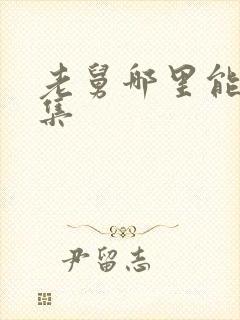 老舅哪里能
集
尹留志